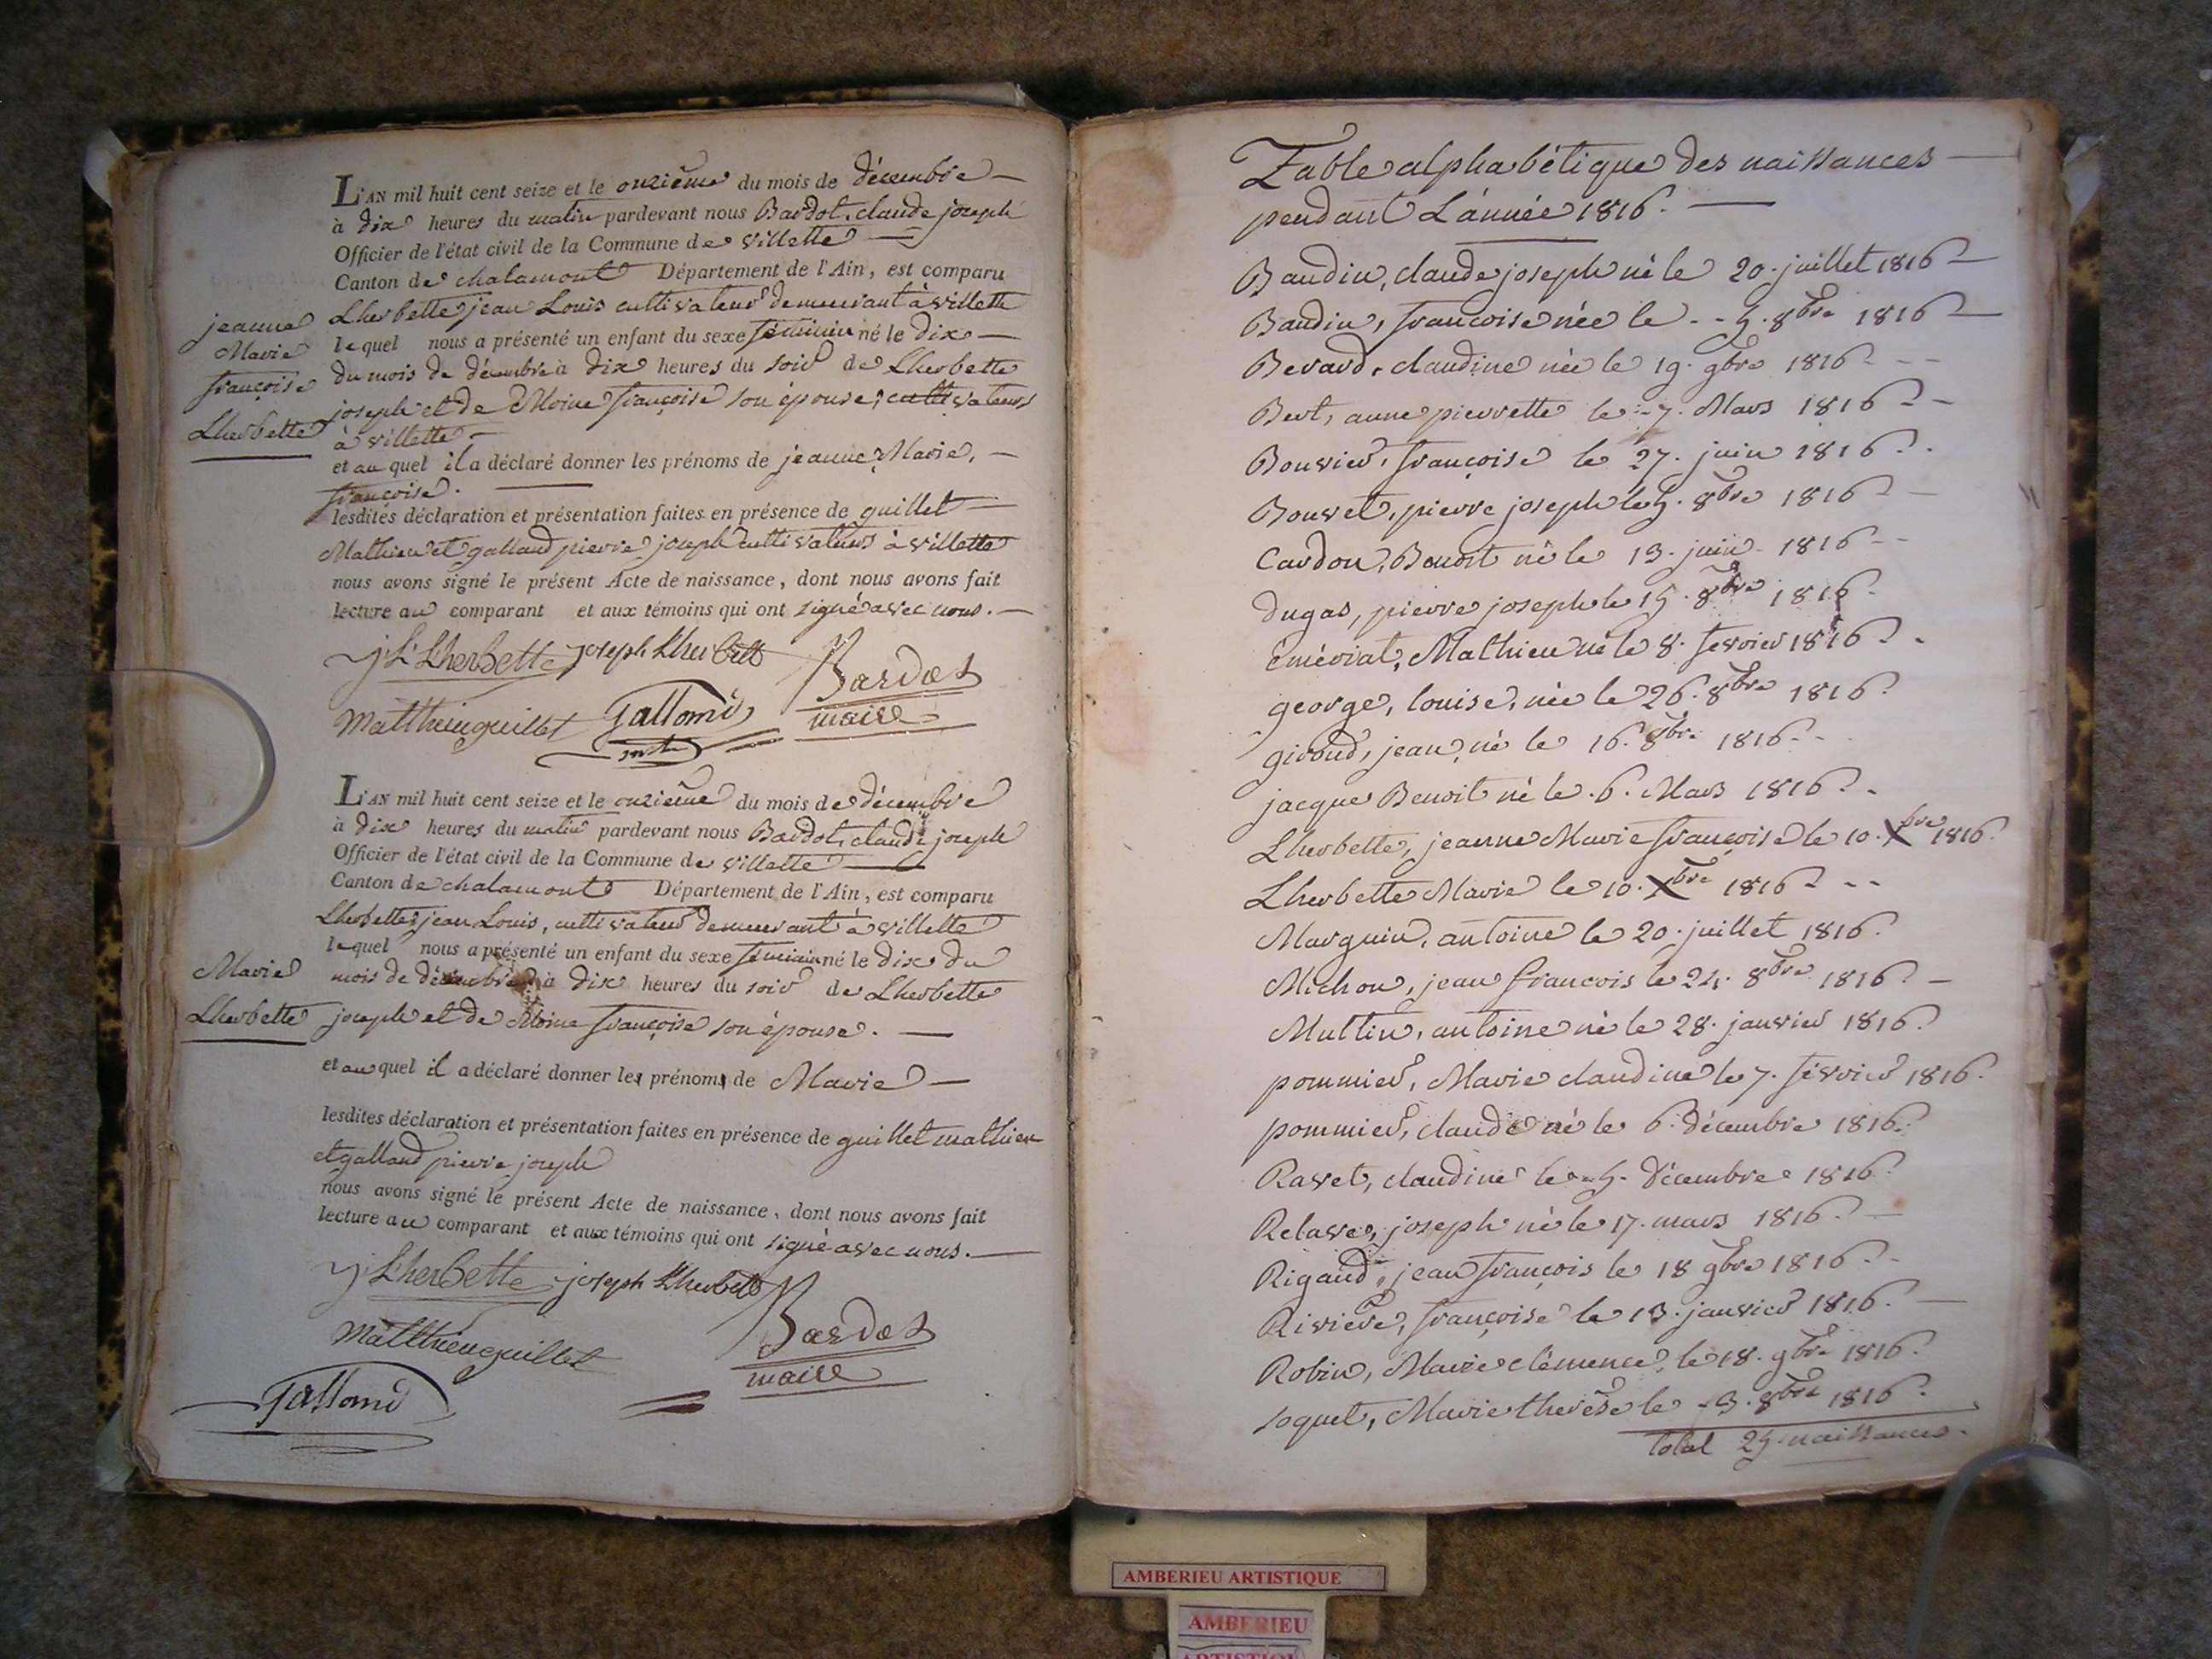 L'AN mil huit cent seize et le onzième du mois de décembre
à dix heures du matin pardevant nous Bardot, claude joseph
Officier de l'état civil de la Commune de villette
Canton de chalamont Département de l'Ain, est comparu
Lherbette jean Louis cultivateur demeurant à villette
lequel nous a présenté un enfant du sexe féminin né le dix
du mois de décembre à dix heures du soir de Lherbette
joseph et de Moine françoise son épouse, cultivateurs
à villette
et au quel il a déclaré donner les prénoms de jeanne Marie,
françoise.
lesdites déclaration et présentation faites en présence de guillet
Mathieu et galland pierre joseph cultivateurs à villette
nous avons signé le présent Acte de naissance, dont nous avons fait
lecture au comparant et aux témoins qui ont signé avec nous.
jeanne
Marie
françoise
Lherbette
J L Lherbette joseph Lherbette Bardot
Matthieu guillet Galland maire
L'AN mil huit cent seize et le onzième du mois de décembre
à dix heures du matin pardevant nous Bardot, claude joseph
Officier de l'état civil de la Commune de villette
Canton de chalamont Département de l'Ain, est comparu
Lherbette jean Louis, cultivateur demeurant à villette
lequel nous a présenté un enfant du sexe féminin né le dix du
mois de décembre à dix heures du soir de Lherbette
joseph et de Moine françoise son épouse.
et au quel il a déclaré donner les prénoms de Marie
lesdites déclaration et présentation faites en présence de guillet mathieu
et galland pierre joseph
nous avons signé le présent Acte de naissance, dont nous avons fait
lecture au comparant et aux témoins qui ont signé avec nous.
Marie
Lherbette
J Lherbette joseph Lherbette
Matthieu guillet Bardot
Galland maire
Table alphabétique des naissances
pendant L'année 1816.
Baudin, claude joseph né le 20. juillet 1816
Baudin, françoise née le 5. 8bre 1816
Berard, claudine née le 19. 9bre 1816
Bert, anne pierrette le 7. Mars 1816
Bouvier, françoise le 27. juin 1816
Bouvet, pierre joseph le 5. 8bre 1816
Cardon, Benoit né le 13. juin 1816
Dugas, pierre joseph le 15. 8bre 1816
émériat, Mathieu né le 8. fevrier 1816
george, louise, née le 26. 8bre 1816
giroud, jean, né le 16. 8bre 1816
jacque Benoit né le 6. Mars 1816
Lherbette, jeanne Marie françoise le 10. Xbre 1816
Lherbette Marie le 10. Xbre 1816
Marguin, antoine le 20. juillet 1816
Michon, jean françois le 24. 8bre 1816
Muttin, antoine né le 28. janvier 1816
pommier, Marie claudine le 7. février 1816
pommier, claude né le 6. décembre 1816
Ravet, claudine le 5. Décembre 1816
Relave, joseph né le 17. mars 1816
Rigaud, jean françois le 18 9bre 1816
Rivière, françoise le 13. janvier 1816
Robin, Marie clémence, le 18. 9bre 1816
soquet, Marie therèse le 3. 8bre 1816
total 25 naissances.
AMBERIEU ARTISTIQUE
AMBERIEU
ARTISTIQUE